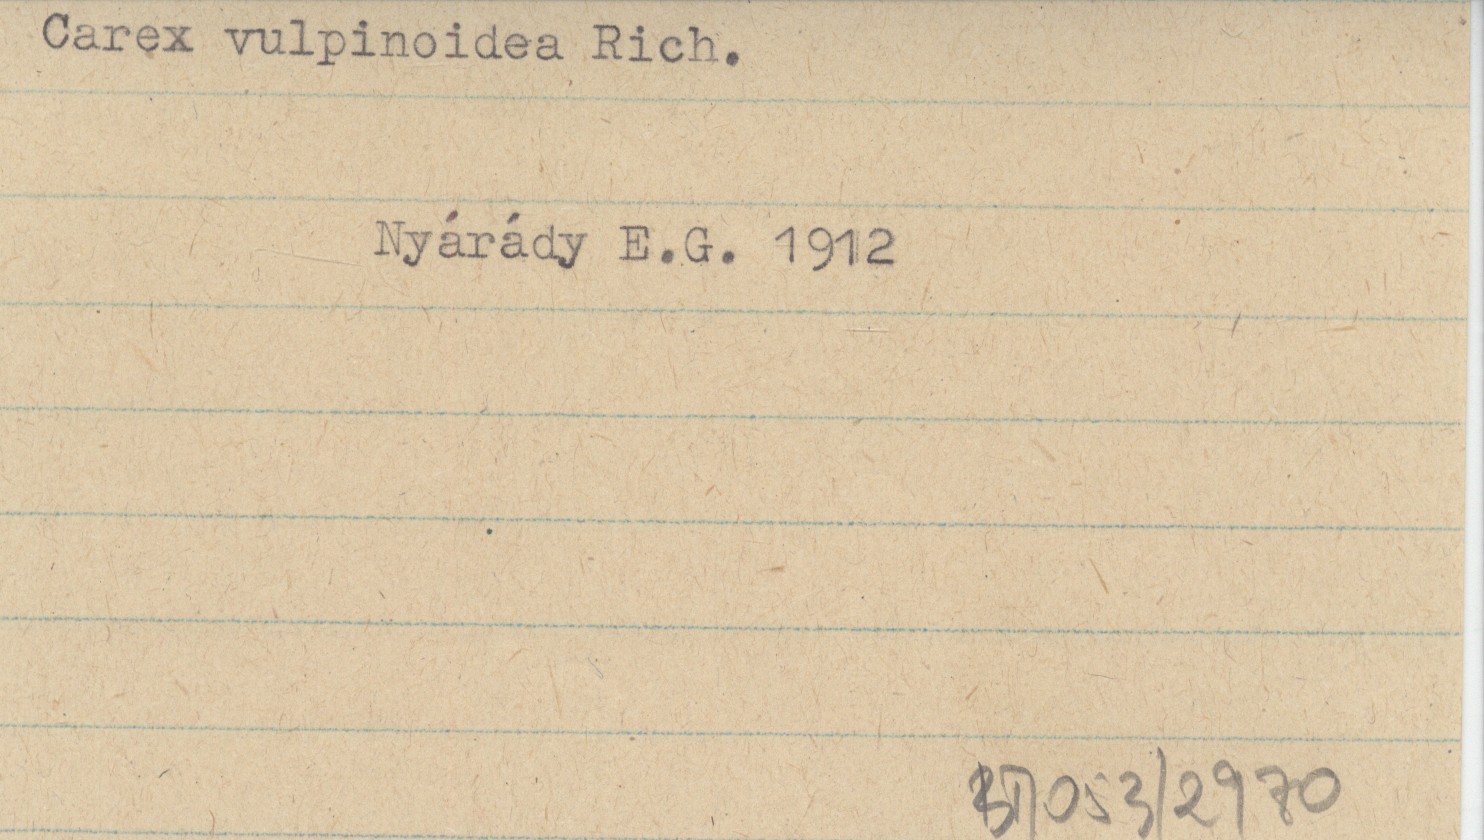 Carex vulpinoidea Rich.
Nyárády E.G. 1912
053/2970